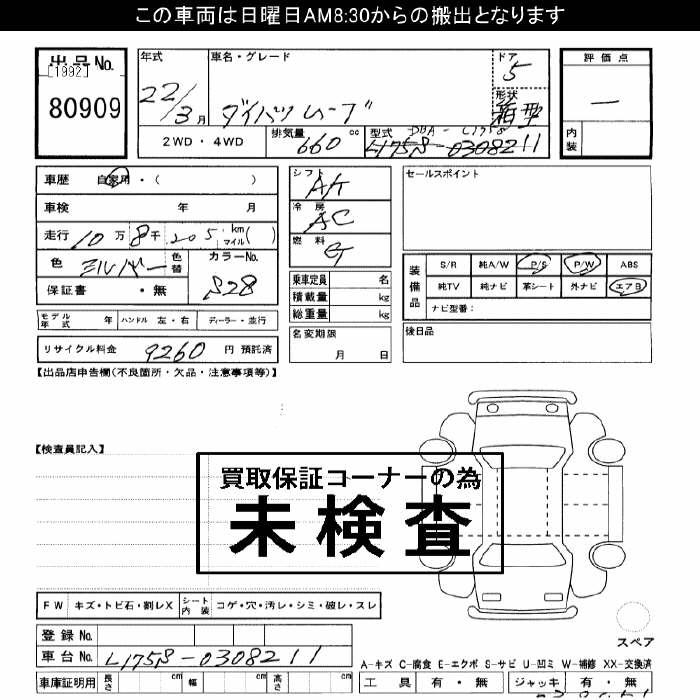 この車両は日曜日AM8:30からの搬出となります
出品No.
[1992]
80909
年式
22/3月
車名・グレード
ダイハツ ムーブ
ドア
5
形状
箱型
評価点
―
内装
2WD・4WD
排気量
660 cc
型式
DBA-L175S
L175S-0308211
車歴 自家用・( )
車検 年 月
走行 10万8千205 km マイル( )
色 シルバー 色替
カラーNo.
S28
保証書 ・無
シフト
AT
冷房
AC
燃料
G
乗車定員 名
積載量 kg
総重量 kg
名変期限
月 日
セールスポイント
装備品
S/R 純A/W P/S P/W ABS
純TV 純ナビ 革シート 外ナビ エアB
ナビ型番:
後日品
モデル年式 年 ハンドル 左・右 ディーラー・並行
リサイクル料金 9260 円 預託済
【出品店申告欄(不良箇所・欠品・注意事項等)】
【検査員記入】
買取保証コーナーの為
未検査
FW キズ・トビ石・割レX シート内装 コゲ・穴・汚レ・シミ・破レ・スレ
登録No.
車台No. L175S-0308211
車庫証明用 長さ cm 幅 cm 高さ cm
スペア
A-キズ C-腐食 E-エクボ S-サビ U-凹ミ W-補修 XX-交換済
工具 有・無 ジャッキ 有・無